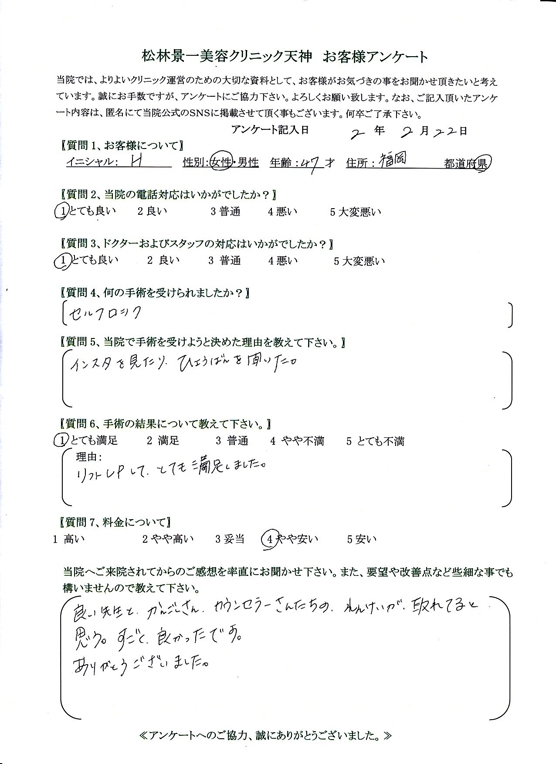 松林景一美容クリニック天神　お客様アンケート
当院では、よりよいクリニック運営のための大切な資料として、お客様がお気づきの事をお聞かせ頂きたいと考え
ています。誠にお手数ですが、アンケートにご協力下さい。よろしくお願い致します。なお、ご記入頂いたアンケ
ート内容は、匿名にて当院公式のSNSに掲載させて頂く事もございます。何卒ご了承下さい。
アンケート記入日　2 年 2 月 22 日
【質問1、お客様について】
イニシャル: H　性別:女性・男性　年齢:47才　住所: 福岡　都道府県
【質問2、当院の電話対応はいかがでしたか?】
1とても良い　2 良い　3 普通　4 悪い　5 大変悪い
【質問3、ドクターおよびスタッフの対応はいかがでしたか?】
1とても良い　2 良い　3 普通　4 悪い　5 大変悪い
【質問4、何の手術を受けられましたか?】
セルフロック
【質問5、当院で手術を受けようと決めた理由を教えて下さい。】
インスタを見たり、ひょうばんを聞いた。
【質問6、手術の結果について教えて下さい。】
1とても満足　2 満足　3 普通　4 やや不満　5 とても不満
理由:
リフトUPして、とても満足しました。
【質問7、料金について】
1 高い　2 やや高い　3 妥当　4やや安い　5 安い
当院へご来院されてからのご感想を率直にお聞かせ下さい。また、要望や改善点など些細な事でも
構いませんので教えて下さい。
良い先生と、かんごしさん、カウンセラーさんたちの、れんけいが、取れてると
思う。すごく、良かったです。
ありがとうございました。
≪アンケートへのご協力、誠にありがとうございました。≫